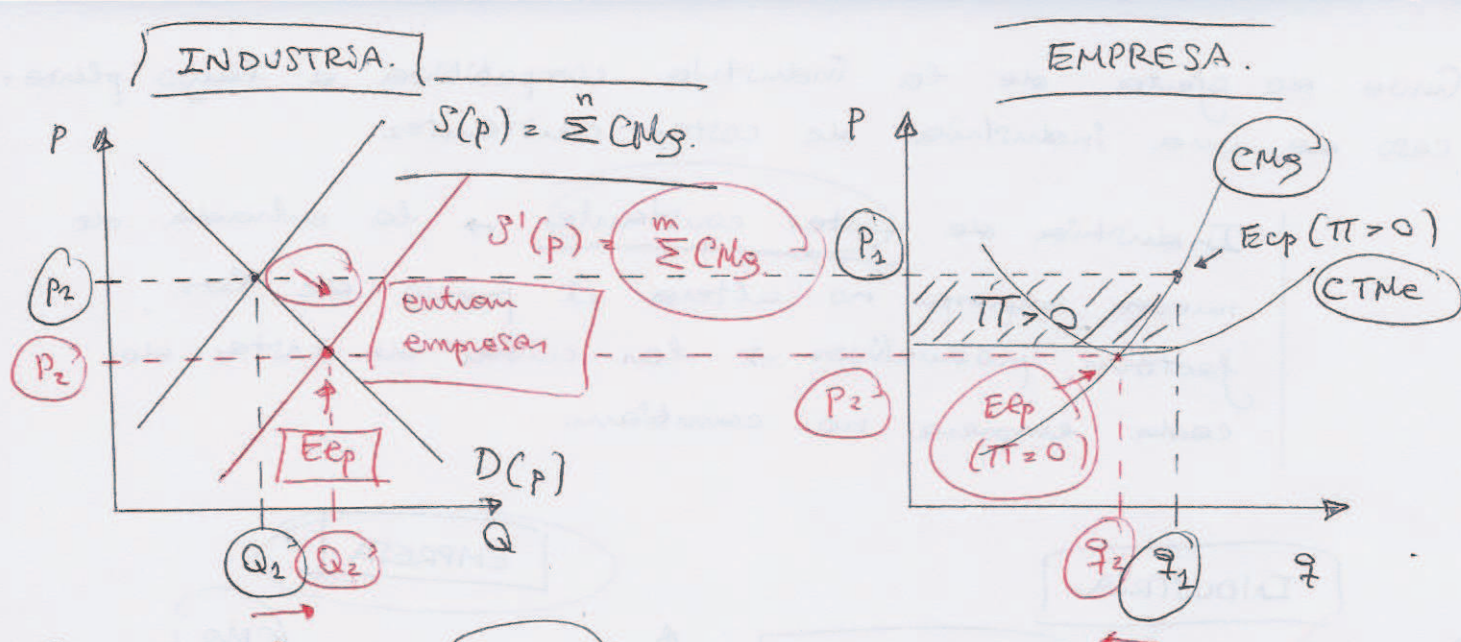 INDUSTRIA.
P
S(p) = n Σ CMg.
S'(p) = m Σ CMg
P2
P2'
entran
empresas
Eep
D(p)
Q1
Q2
Q
EMPRESA.
P
CMg
P1
Ecp (π > 0)
CTMe
π > 0
P2
Eep
(π = 0)
q2
q1
q